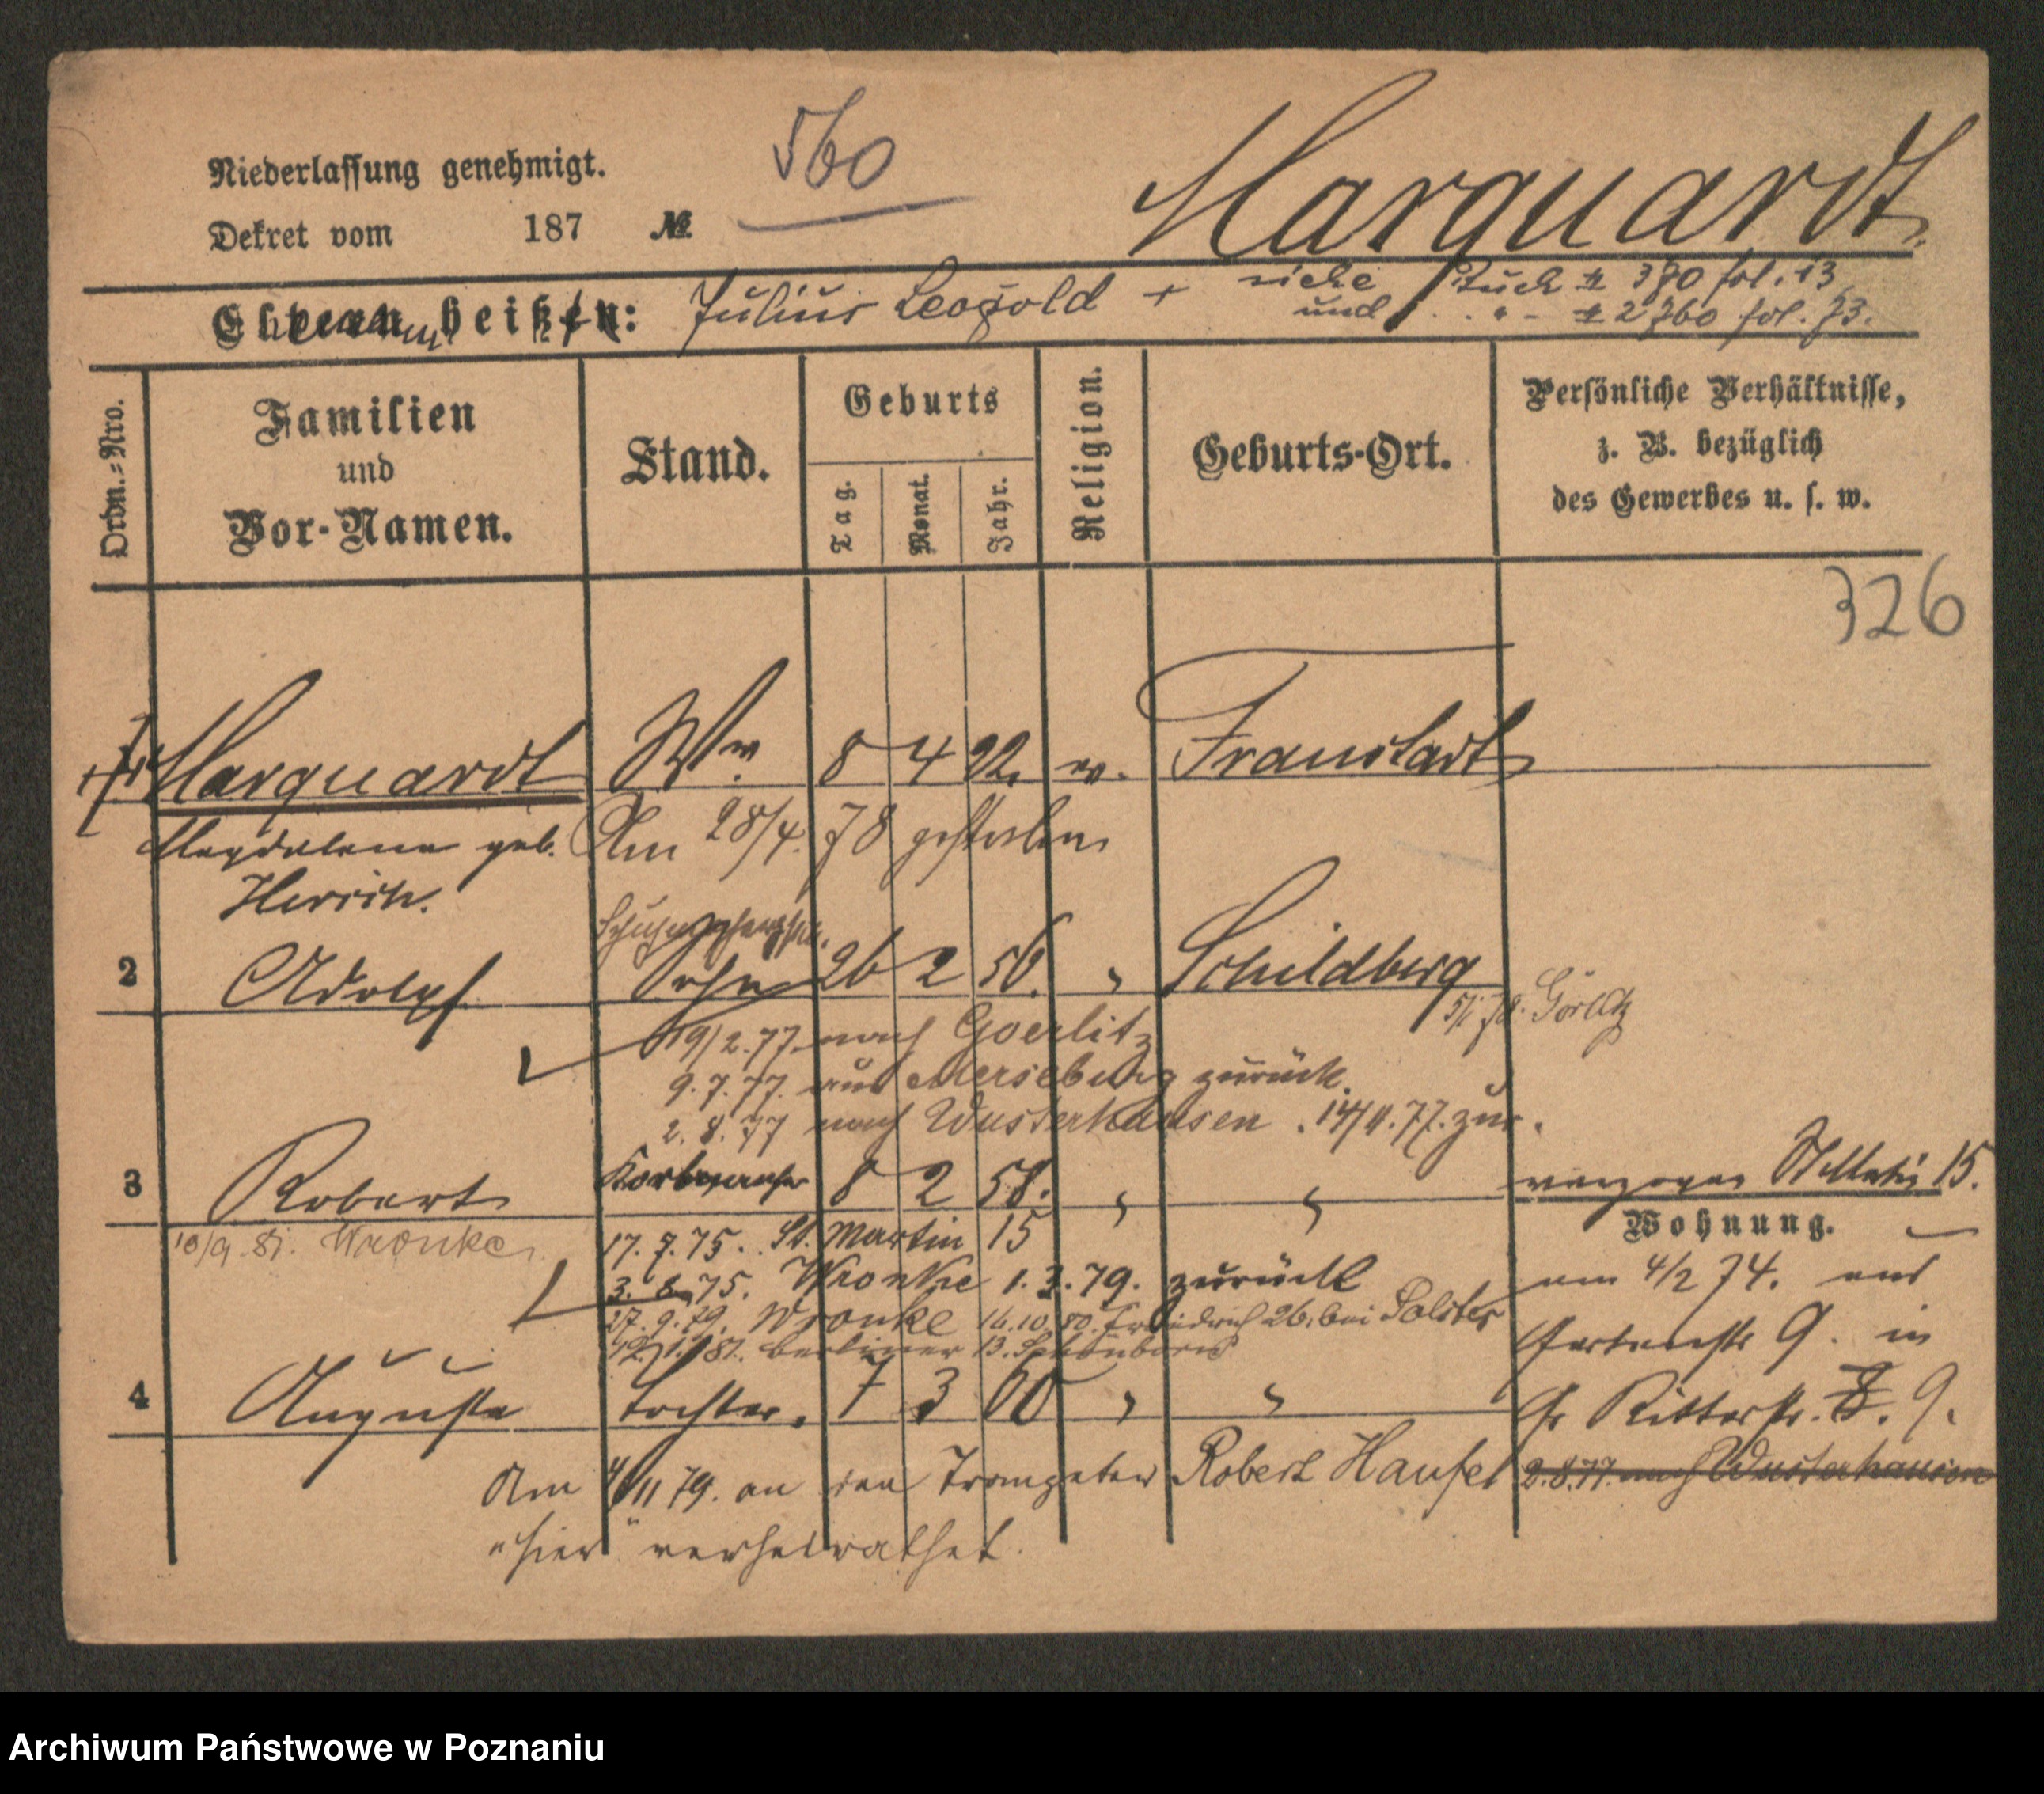 560
Niederlassung genehmigt.
Dekret vom 187 №
Marquardt
Eltern heißen: Julius Leopold + siehe Stück # 380 fol. 13
und " - # 2760 fol. 73.
Ordn.=Nro.
Familien
und
Vor-Namen.
Stand.
Geburts
Tag.
Monat.
Jahr.
Religion.
Geburts-Ort.
Persönliche Verhältnisse,
z. B. bezüglich
des Gewerbes u. s. w.
326
Marquardt Ww. 8 4 22. ev. Fraustadt
Magdalena geb. Am 28/4. 78 gestorben
2 Adolph Sohn 26 2 56. " Schildberg
5/1 78. Görlitz
19/2.77. nach Goerlitz
9.7.77. aus Merseburg zurück.
2.8.77 nach Wusterhausen. 14/11.77. zur.
3 Robert Korbmacher 8 2 58. " " verzogen 15.
10/9.81. Wronke
17.7.75. St. Martin 15
Wohnung.
3.8.75. Wronke 1.3.79. zurück
am 4/2 74. aus
27.9.79. Wronke 16.10.80. Friedrich 26. bei
Gartenstr 9. in
81. Berliner 13.
4 Auguste Tochter. 7 3 60 " "
Gr Ritterstr. 8. 9.
Am 4/11 79. an den Trompeter Robert Haufel
2.8.77. nach Wusterhausen
"hier" verheirathet.
Archiwum Państwowe w Poznaniu